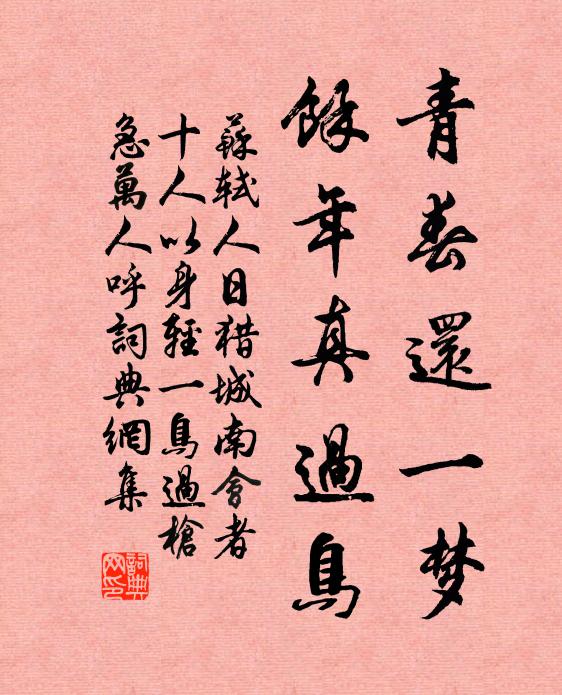 青春還一梦
餘年真過鳥
蘇轼人日猎城南會者
十人以身輕一鳥過槍
急萬人呼詞典網集
詞典
网印